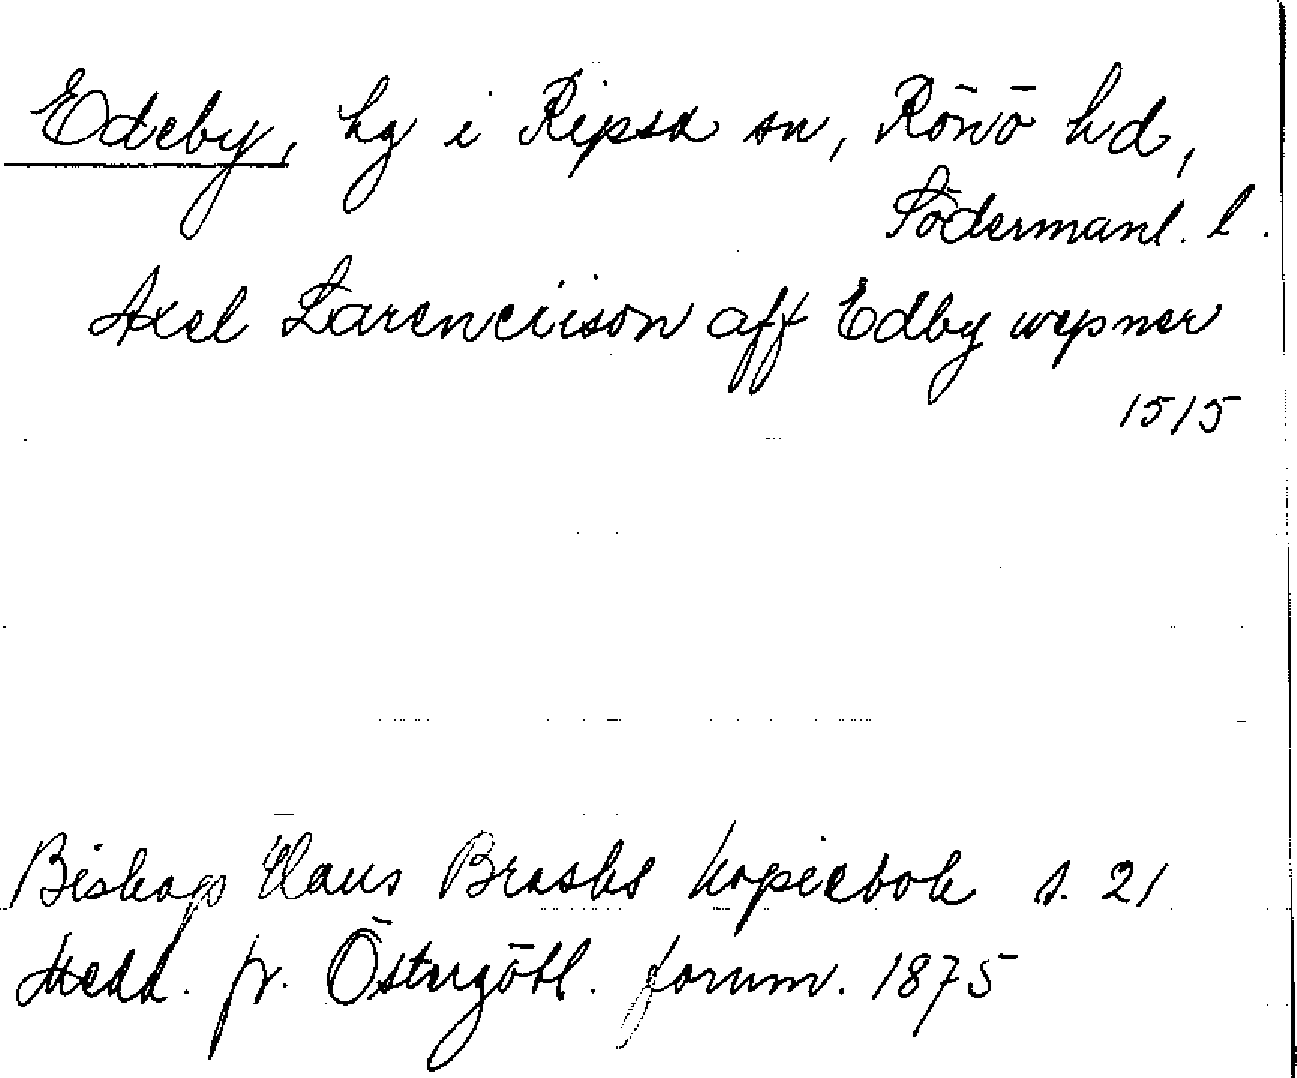 Edeby, hg i Ripsa sn, Rönö hd,
Södermanl. l.
Axel Larenciison aff Edby wepner
1515
Biskop Hans Brasks kopiebok s. 21
Medd. fr. Östergötl. fornm. 1875